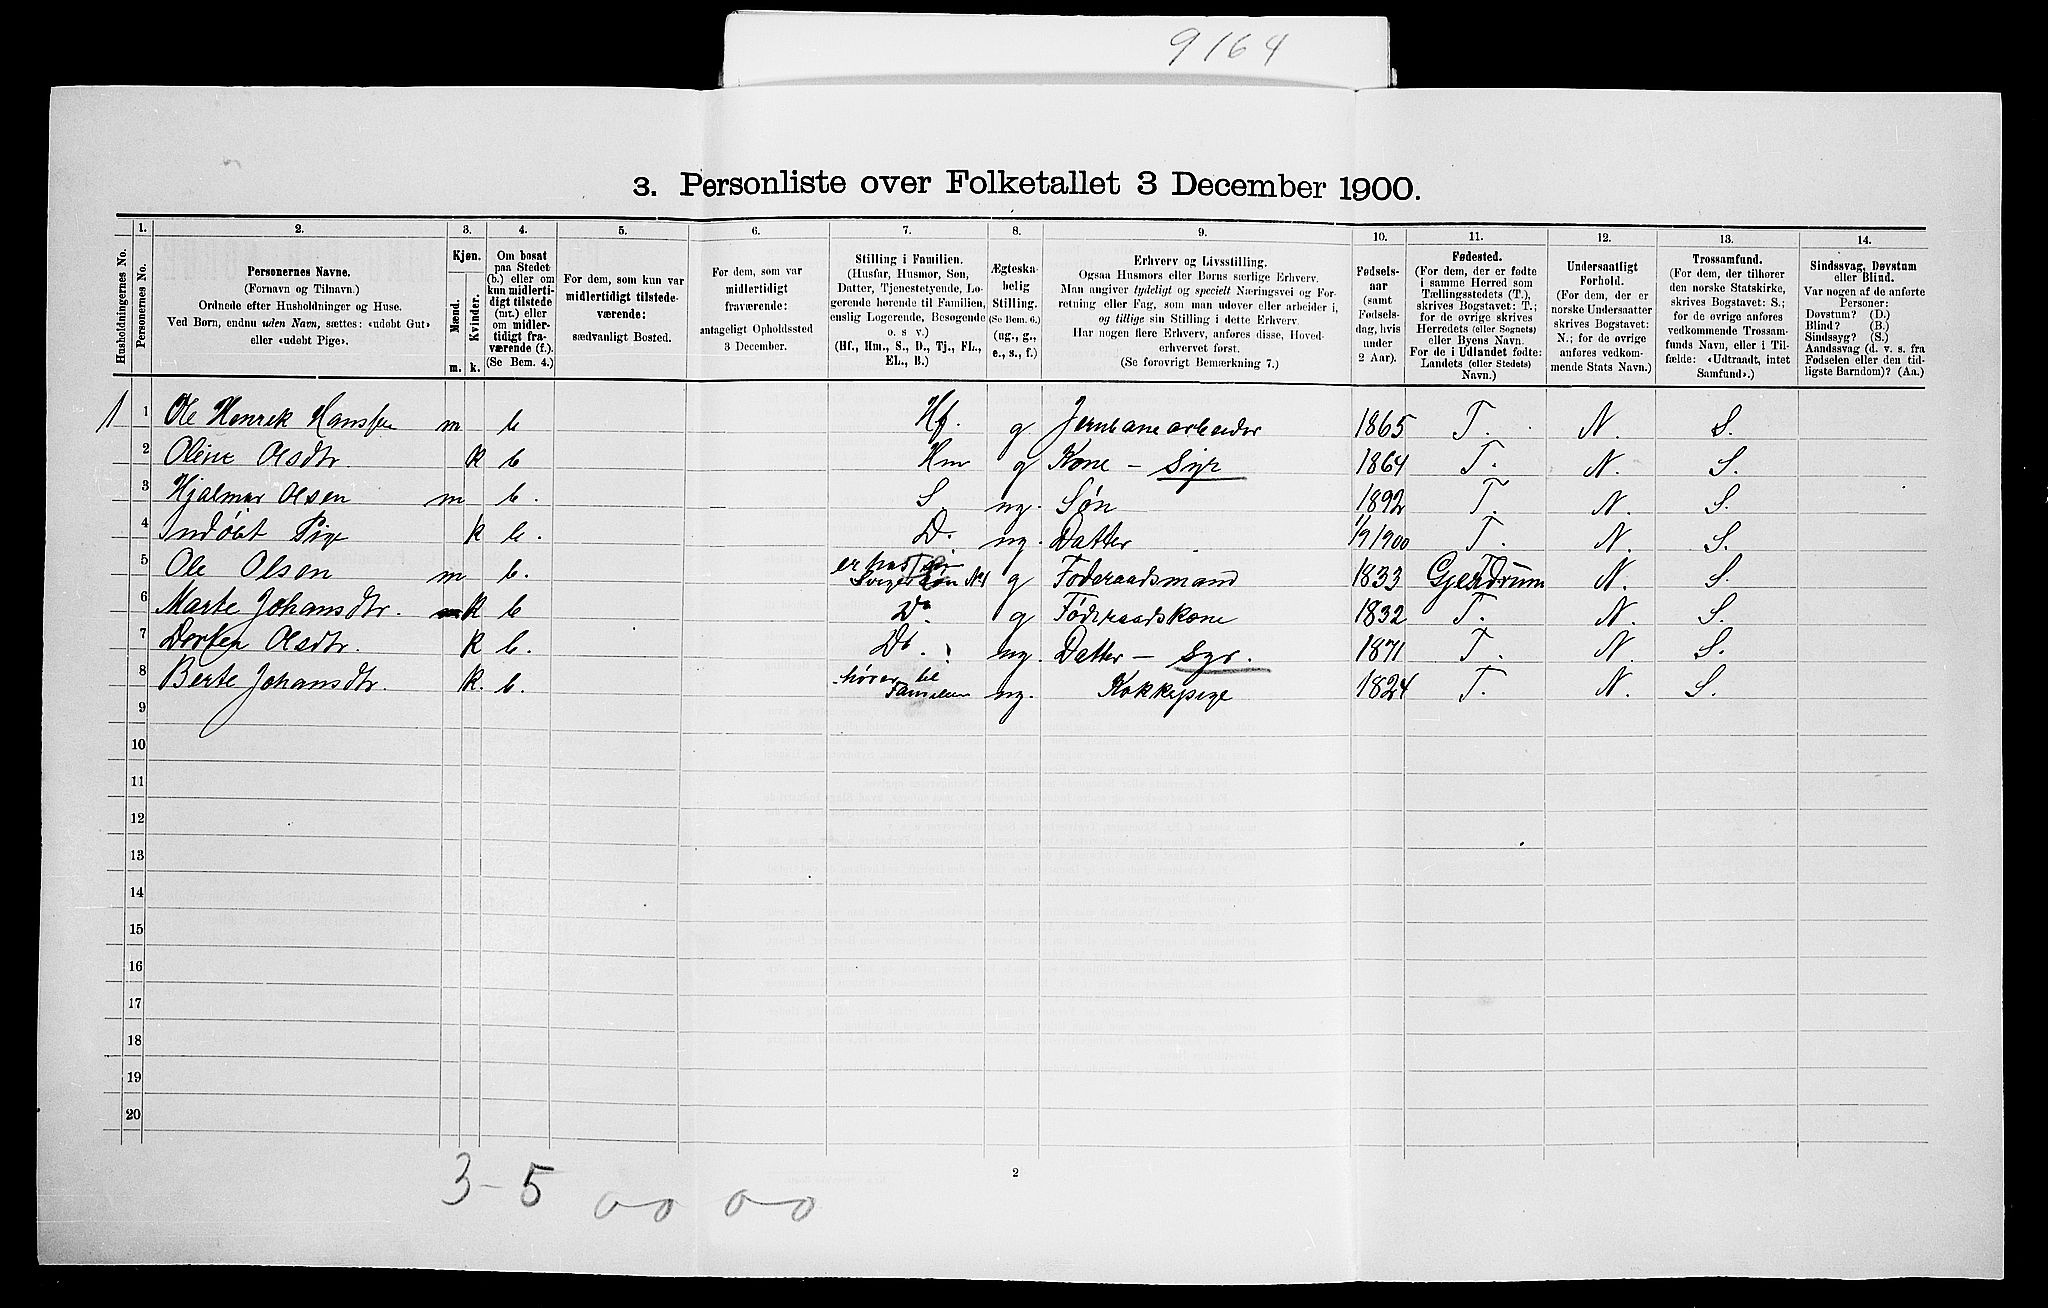 9164
3. Personliste over Folketallet 3 December 1900.
Husholdningernes No.
1.
Personernes No.
2.
Personernes Navne.
(Fornavn og Tilnavn.)
Ordnede efter Husholdninger og Huse.
Ved Børn, endnu uden Navn, sættes: «udøbt Gut»
eller «udøbt Pige».
3.
Kjøn.
Mænd.
Kvinder.
m. k.
4.
Om bosat
paa Stedet
(b.) eller om
kun midlerti-
digt tilstede
(mt.) eller
om midler-
tidigt fra-
værende (f.).
(Se Bem. 4.)
5.
For dem, som kun var
midlertidigt tilstede-
værende:
sædvanligt Bosted.
6.
For dem, som var
midlertidigt
fraværende:
antageligt Opholdssted
3 December.
7.
Stilling i Familien.
(Husfar, Husmor, Søn,
Datter, Tjenestetyende, Lo-
gerende hørende til Familien,
enslig Logerende, Besøgende
o. s v.)
(Hf., Hm., S., D., Tj., FL.,
EL., B.)
8.
Ægteska-
belig
Stilling.
(Se Bem. 6.)
(ug., g.,
e., s., f.)
9.
Erhverv og Livsstilling.
Ogsaa Husmors eller Børns særlige Erhverv.
Man angiver tydeligt og specielt Næringsvei og For-
retning eller Fag, som man udøver eller arbeider i,
og tillige sin Stilling i dette Erhverv.
Har nogen flere Erhverv, anføres disse, Hoved-
erhvervet først.
(Se forøvrigt Bemærkning 7.)
10.
Fødsels-
aar
(samt
Fødsels-
dag, hvis
under
2 Aar).
11.
Fødested.
(For dem, der er fødte
i samme Herred som
Tællingsstedets (T.),
skrives Bogstavet: T.;
for de øvrige skrives
Herredets (eller Sognets)
eller Byens Navn.
For de i Udlandet fødte:
Landets (eller Stedets)
Navn.)
12.
Undersaatligt
Forhold.
(For dem, der er
norske Undersaatter
skrives Bogstavet:
N.; for de øvrige
anføres vedkom-
mende Stats Navn.)
13.
Trossamfund.
(For dem, der tilhører
den norske Statskirke,
skrives Bogstavet: S.;
for de øvrige anføres
vedkommende Trossam-
funds Navn, eller i Til-
fælde: «Udtraadt, intet
Samfund».)
14.
Sindssvag, Døvstum
eller Blind.
Var nogen af de anførte
Personer:
Døvstum? (D.)
Blind? (B.)
Sindssyg? (S.)
Aandssvag (d. v. s. fra
Fødselen eller den tid-
ligste Barndom)? (Aa.)
1 1 Ole Henrik Hanssen m b Hf. g Jernbanearbeider 1865 T. N. S.
2 Oline Olsdtr. k b Hm g Kone – Syr 1864 T. N. S.
3 Hjalmar Olsen m b. S ug. Søn 1892 T. N. S.
4 Indøbt Pige k b. D. ug. Datter 1/9 1900 T. N. S.
5 Ole Olsen m b. er hos Svigersøn No 1 g Føderaadsmand 1833 Gjerdrum N. S.
6 Marte Johansdtr. k b Do. g Føderaadskone 1832 T. N. S.
7 Dorten Olsdtr. k b. Do. ug. Datter – Syr. 1871 T. N. S.
8 Berte Johansdtr. k. b. hører til Familien ug. Kokkepige 1824 T. N. S.
9
10
11
12
13
14
15
16
17
18
19
20
3 - 5 0 - 0 0 - 0
2